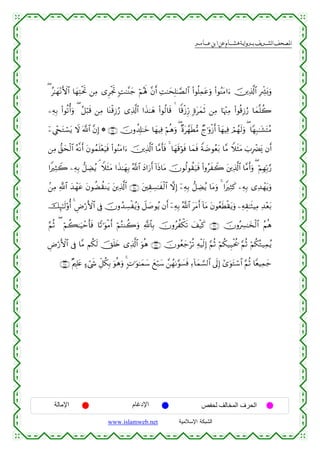 المصحف الشريف برواية هشام عن ابن عامر
وَبَشِّرِ ٱلَّذِينَ ءَامَنُوا۟ وَعَمِلُوا۟ ٱلصَّـٰلِحَـٰتِ أَنَّ لَهُمْ جَنَّـٰتٍ تَجْرِى مِن تَحْتِهَا ٱلْأَنْهَـٰرُ ۖ
كُلَّمَا رُزِقُوا۟ مِنْهَا مِن ثَمَرَةٍ رِّزْقًا ۙ قَالُوا۟ هَـٰذَا ٱلَّذِى رُزِقْنَا مِن قَبْلُ ۖ وَأُتُوا۟ بِهِۦ
مُتَشَـٰبِهًا ۖ وَلَهُمْ فِيهَآ أَزْوَٰجٌ مُّطَهَّرَةٌ ۖ وَهُمْ فِيهَا خَـٰلِدُونَ * إِنَّ ٱللَّهَ لَا يَسْتَحْىِۦٓ
أَن يَضْرِبَ مَثَلًا مَّا بَعُوضَةً فَمَا فَوْقَهَا ۚ فَأَمَّا ٱلَّذِينَ ءَامَنُوا۟ فَيَعْلَمُونَ أَنَّهُ ٱلْحَقُّ مِن
رَّبِّهِمْ ۖ وَأَمَّا ٱلَّذِينَ كَفَرُوا۟ فَيَقُولُونَ مَاذَآ أَرَادَ ٱللَّهُ بِهَـٰذَا مَثَلًا ۘ يُضِلُّ بِهِۦ كَثِيرًا
وَيَهْدِى بِهِۦ كَثِيرًا ۚ وَمَا يُضِلُّ بِهِۦٓ إِلَّا ٱلْفَـٰسِقِينَ ٱلَّذِينَ يَنقُضُونَ عَهْدَ ٱللَّهِ مِنۢ
بَعْدِ مِيثَـٰقِهِۦ وَيَقْطَعُونَ مَآ أَمَرَ ٱللَّهُ بِهِۦٓ أَن يُوصَلَ وَيُفْسِدُونَ فِى ٱلْأَرْضِ ۚ أُو۟لَـٰٓئِكَ
هُمُ ٱلْخَـٰسِرُونَ كَيْفَ تَكْفُرُونَ بِٱللَّهِ وَكُنتُمْ أَمْوَٰتًا فَأَحْيَـٰكُمْ ۖ ثُمَّ
يُمِيتُكُمْ ثُمَّ يُحْيِيكُمْ ثُمَّ إِلَيْهِ تُرْجَعُونَ هُوَ ٱلَّذِى خَلَقَ لَكُم مَّا فِى ٱلْأَرْضِ
جَمِيعًا ثُمَّ ٱسْتَوَىٰٓ إِلَى ٱلسَّمَآءِ فَسَوَّىٰهُنَّ سَبْعَ سَمَـٰوَٰتٍ ۚ وَهُوَ بِكُلِّ شَىْءٍ عَلِيمٌ
الحرف المخالف لحفص الإدغام الإمالة
الشبكة الإسلامية www.islamweb.net